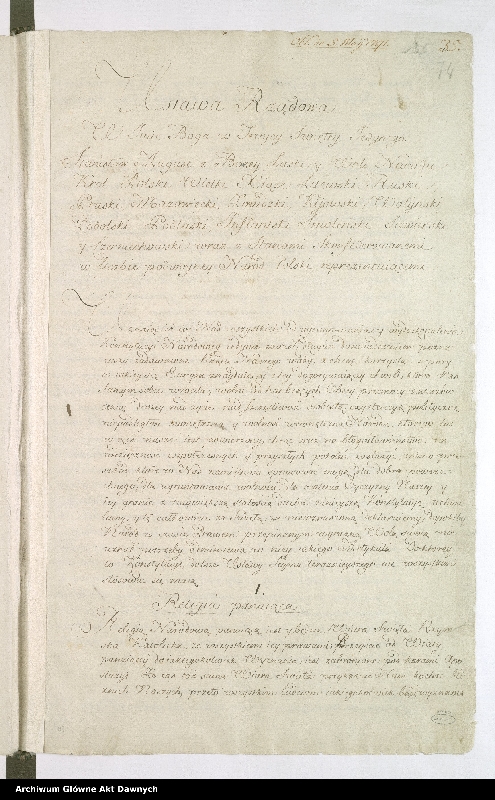 Ustawa Rządowa
W Imie Boga w Troycy Swiętey Jedynego.
Stanisław August z Bożey Łaski y Woli Narodu
Krol Polski, Wielki Xiąże Litewski, Ruski,
Pruski, Mazowiecki, Żmudzki, Kijowski, Wołyński
Podolski, Podlaski, Inflantski, Smoleński, Siewierski
y Czerniechowski; wraz z Stanami Skonfederowanemi
w liczbie podwoyney Narod Polski reprezentującemi
Uznając, iż los Nas wszystkich od ugruntowania y wydoskonalenia
Konstytucyi Narodowey iedynie zawisł, długim doświadczeniem
zadawnione Rządu Naszego wady, a chcąc korzystać z pory
w iakiey się Europa znayduie, y z tey dogorywaiącey chwili, która Nas
Samym sobie wróciła; wolni od
ceniąc drożey nad życie, nad szczęśliwość osobistą, exystencyą polityczną,
niepodległość zewnętrzną y wolność wewnętrzną Narodu, ktorego los
w ręce nasze iest powierzony; chcąc oraz na błogosławieństwo, na
wdzięczność współczesnych y przyszłych pokoleń zasłużyć; mimo
które w Nas namiętności sprawować mogą; dla dobra
dla ugruntowania wolności, dla ocalenia Oyczyzny Naszey y
iey granic z naywiększą stałością ducha, ninieyszą Konstytucyę
y tę całkowicie za świętą, za niewzruszoną deklaruiemy, dopokiby
Narod w czasie Prawem przepisanym, wyraźną Wolą swoią nie
uznał potrzeby odmienienia w niey iakiego Artykułu. Do ktorey
to Konstytucyi dalsze Ustawy Seymu teraznieyszego we wszystkim
stosować się maią
1.
Religia panuiąca
Religią Narodową panuiącą iest y będzie Wiara Swięta Rzym-
ska Katolicka, ze wszystkiemi iey prawami; Przeyście od Wiary
panuiącey do iakiegokolwiek Wyznania iest zabronione pod karami Apo-
stazyi. Że zaś taż sama Wiara Swięta przykazuie Nam kochać
bliźnich Naszych, przeto wszystkim Ludziom iakiegokolwiek bądź wyznania
Archiwum Główne Akt Dawnych